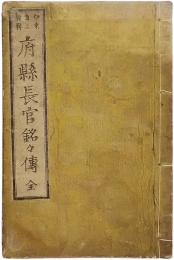 府縣長官銘々傳 全